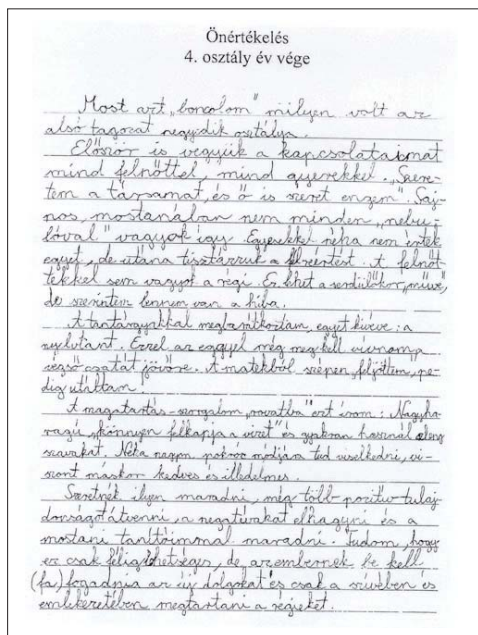 Önértékelés
4. osztály év vége
Most azt „boncolom" milyen volt az
alsó tagozat negyedik osztálya.
Először is vegyük a kapcsolataimat
mind felnőttel, mind gyerekkel. „Szere-
tem a társamat, és ő is szeret engem". Saj-
nos, mostanában nem minden „nebu-
lóval" vagyok így. Egyesekkel néha nem értek
egyet, de utána tisztázzuk a félreértést. A felnőt-
tekkel sem vagyok a régi. Ez lehet a serdülőkor „műve",
de szerintem bennem van a hiba.
A tantárgyakkal megbarátkoztam, egyet kivéve: a
nyelvtant. Ezzel az eggyel még meg kell vívnom a
végső csatát jövőre. A matekból szépen feljöttem, pe-
dig utáltam.
A magatartás-szorgalom „rovatba" ezt írom: Nagyha-
ragú, „könnyen felkapja a vizet" és gyakran használ szleng
szavakat. Néha nagyon pokróc módjára tud viselkedni, vi-
szont máskor kedves és illedelmes.
Szeretnék ilyen maradni, még több pozitív tulaj-
donságot átvenni, a negatívakat elhagyni és a
mostani tanítóimmal maradni. Tudom, hogy
ez csak félig lehetséges, de az embernek be kell
(fa) fogadnia az új dolgokat és csak a szívében és
emlékezetében megtartani a régieket.